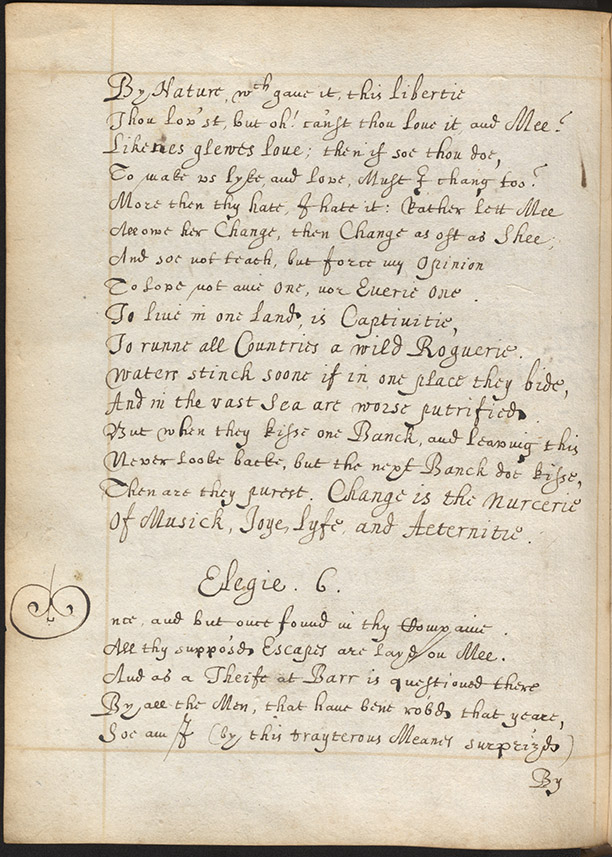 By Nature, wch gaue it, this libertie
Thou lov'st, but oh! canst thou loue it, and Mee?
Likenes glewes loue; then if soe thou doe,
To make vs lyke, and love, Must I chang too?
More then thy hate, I hate it: Rather lett Mee
Allowe her Change, then Change as oft as Shee;
And soe not teach, but force my Opinion
To Love not anie One, nor Euerie One.
To live in one land, is Captivitie,
To runne all Countries a wild Roguerie.
Waters stinck soone if in one place they bide,
And in the vast Sea are worse putrified.
But when they kisse one Banck, and leaving this
Never looke backe, but the next Banck doe kisse,
Then are they purest. Change is the Nurcerie
Of Musick, Joye, Lyfe, and Aeternitie.
Elegie. 6.
nce, and but once found in thy Companie.
All thy suppos'd Escapes are layd on Mee.
And as a Theife at Barr is questioned there
By all the Men, that have bene robd that yeare,
Soe am I (by this trayterous Meanes surpriz'd)
By